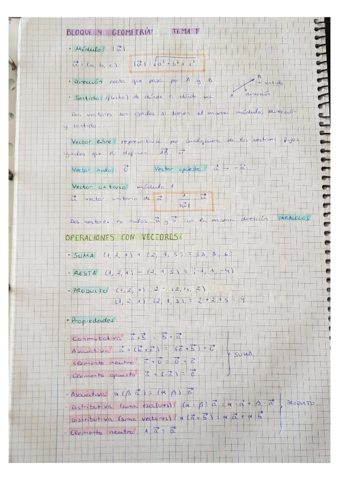 BLOQUE 4 GEOMETRÍA: TEMA 1
· Módulo: |v⃗|
v⃗ = (a, b, c) |v⃗| = √a² + b² + c²
· Dirección: recta que pasa por A y B
· Sentido: (flecha) de dónde a dónde va
Dos vectores son iguales si tienen el mismo módulo, dirección
y sentido
Vector libre: representado por cualquiera de los vectores fijos
iguales que lo definen
Vector nulo: 0⃗ Vector opuesto: a⃗ → -a⃗
Vector unitario: módulo 1
vector unitario de
Dos vectores no nulos u⃗ y v⃗ con la misma dirección: PARALELOS
OPERACIONES CON VECTORES:
· SUMA:
· RESTA:
· PRODUCTO:
· Propiedades:
- Conmutativa: a⃗ + b⃗ = b⃗ + a⃗
- Asociativa: a⃗ + (b⃗ + c⃗) = (a⃗ + b⃗) + c⃗
- Elemento neutro: a⃗ + 0⃗ = a⃗
- Elemento opuesto: a⃗ + (-a⃗) = 0⃗
SUMA
- Asociativa: α (β a⃗) = (α β) a⃗
- Distributiva (suma escalares): (α + β) a⃗ = α a⃗ + β a⃗
- Distributiva (suma vectores): α (a⃗ + b⃗) = α a⃗ + α b⃗
- Elemento neutro: 1 a⃗ = a⃗
PRODUCTO